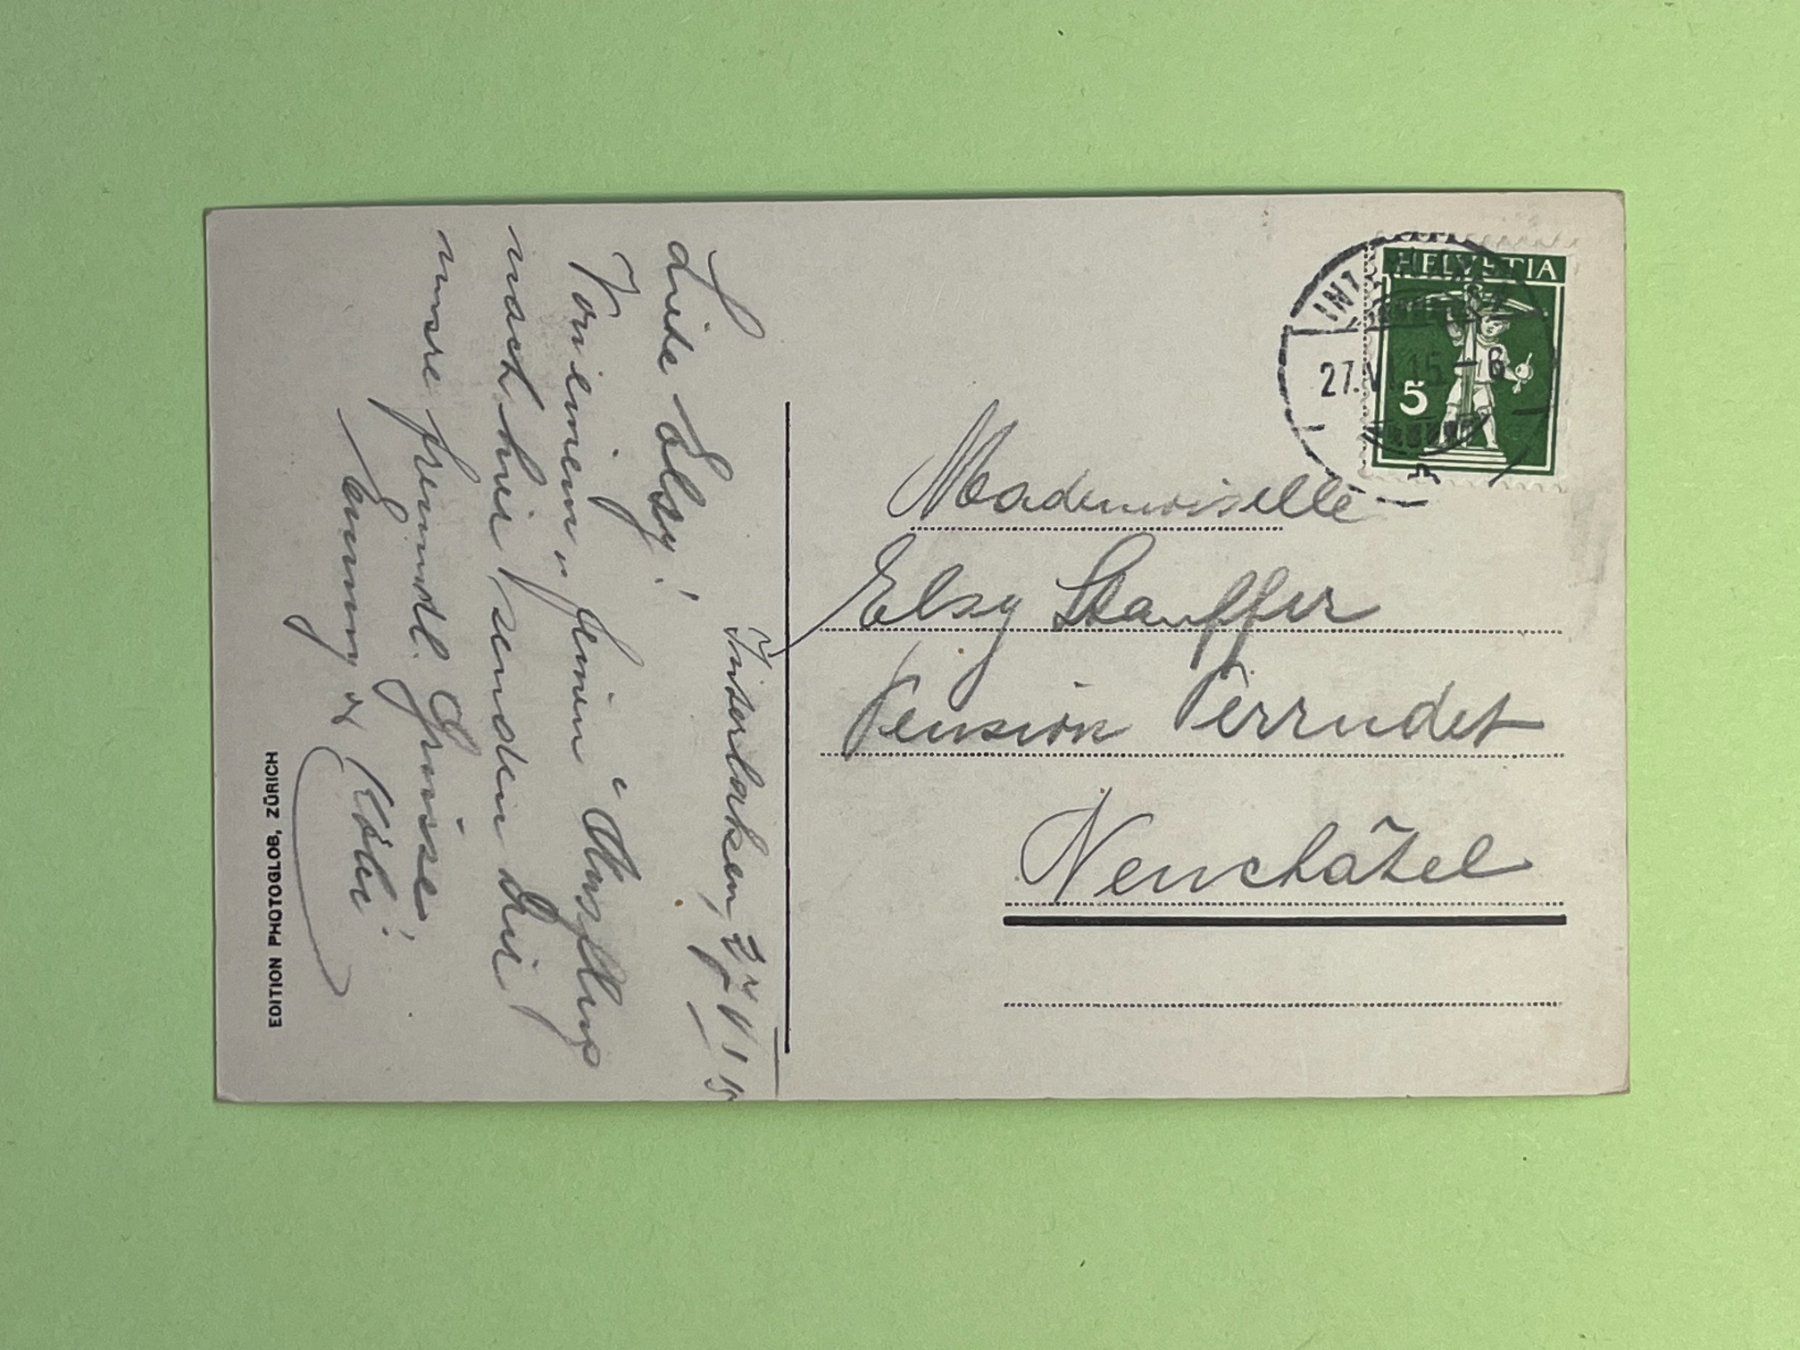 Interlaken, 27 VI 15
Liebe Elsy!
Von einem „feinen" Ausflug
nach hier senden Dir
unsre freundl. Grüsse!
Emmy & Röbi
EDITION PHOTOGLOB, ZÜRICH
HELVETIA
5
27.VI.15-6
Mademoiselle
Elsy Stauffer
Pension Perrudet
Neuchâtel